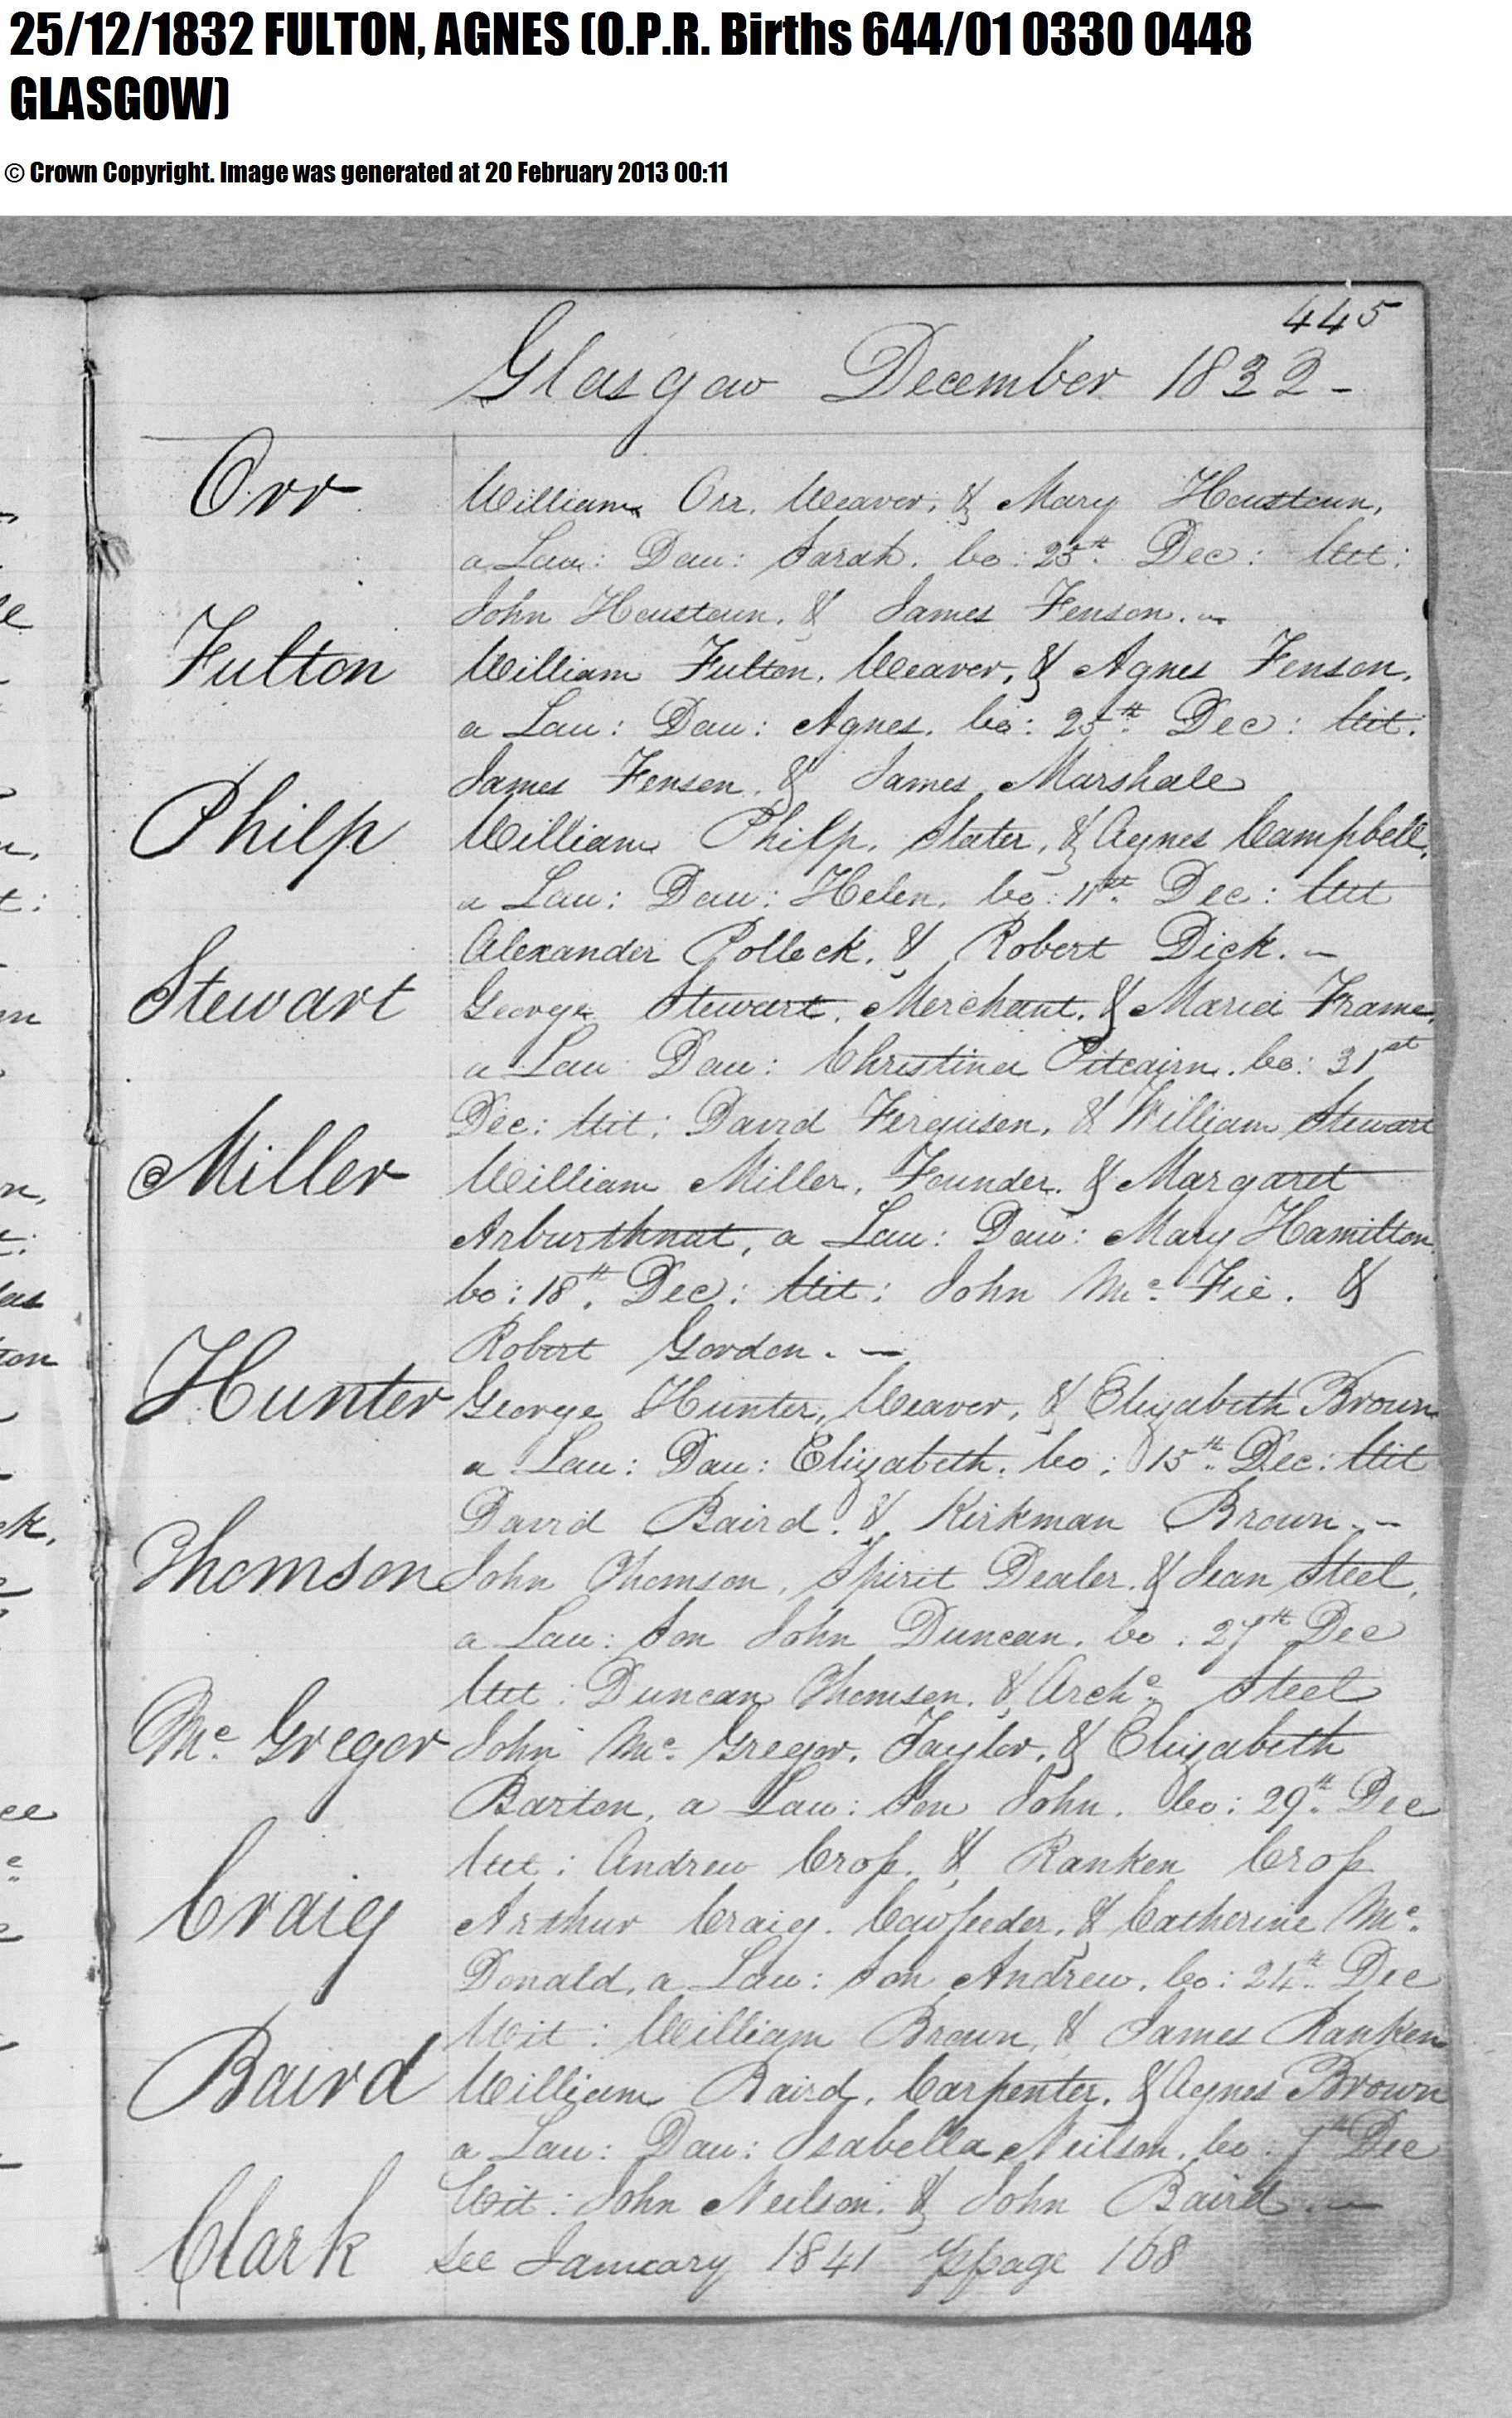 25/12/1832 FULTON, AGNES (O.P.R. Births 644/01 0330 0448
GLASGOW)
© Crown Copyright. Image was generated at 20 February 2013 00:11
445
Glasgow December 1832 -
Orr
William Orr, Weaver, & Mary Houstoun,
a Law: Dau: Sarah. bo: 25th. Dec: Wit:
John Houstoun, & James Fenson. -
Fulton
William Fulton, Weaver, & Agnes Fenson,
a Law: Dau: Agnes. bo: 25th. Dec: Wit:
James Fenson, & James Marshall
Philp
William Philp, Slater, & Agnes Campbell,
a Law: Dau: Helen, bo: 11th. Dec: Wit
Alexander Pollock, & Robert Dick. -
Stewart
George Stewart, Merchant, & Maria Frame,
a Law Dau: Christina Pitcairn. bo: 31st
Dec: Wit: David Ferguson, & William Stewart
Miller
William Miller, Founder. & Margaret
Arburthnut, a Law: Dau: Mary Hamilton
bo: 18th. Dec: Wit: John Mc Fie. &
Robert Gordon. -
Hunter
George Hunter, Weaver, & Elizabeth Brown
a Law: Dau: Elizabeth. bo: 15th. Dec: Wit
David Baird. & Kirkman Brown. -
Thomson
John Thomson, Spirit Dealer. & Jean Steel,
a Law: Son John Duncan. bo: 27th Dec
Wit: Duncan Thomson. & Archd. Steel
Mc Gregor
John Mc Gregor, Taylor, & Elizabeth
Barton, a Law: Son John. bo: 29th. Dec
Wit: Andrew Cross, & Ranken Cross
Craig
Arthur Craig. Cowfeeder, & Catherine Mc
Donald, a Law: Son Andrew, bo: 24th. Dec
Wit: William Brown, & James Ranken
Baird
William Baird, Carpenter, & Agnes Brown
a Law: Dau: Isabella Neilson, bo: 7th Dec
Wit: John Neilson, & John Baird. -
Clark
See January 1841 page 168